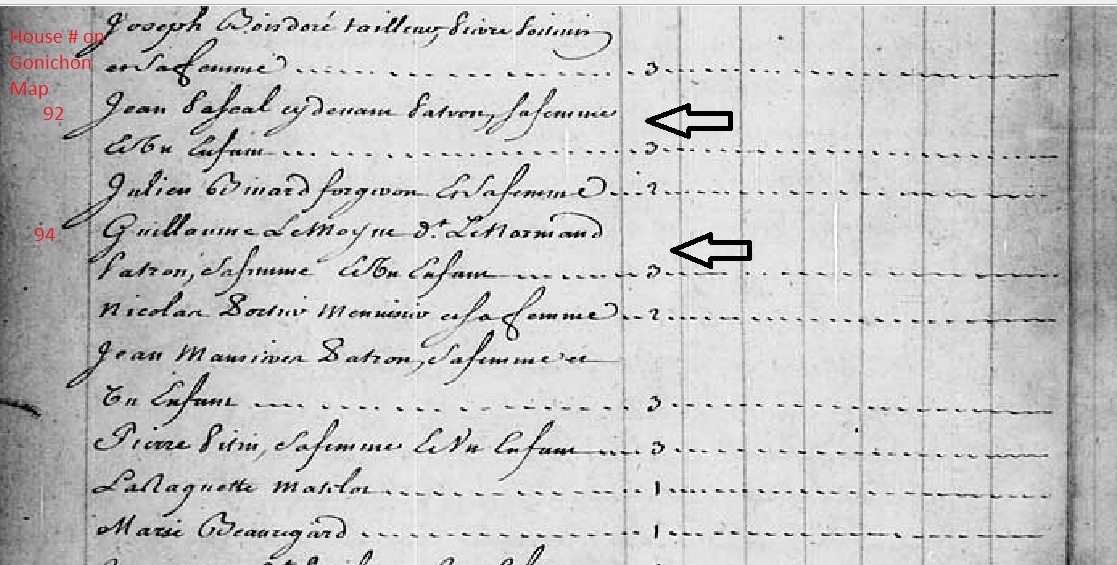 House # on
Gonichon
Map
Joseph Boisdoré tailleur, Pierre
et sa femme 3
92
Jean Pascal cy devant Patron, sa femme
et Un Enfant 3
Julien Binard forgeron et sa femme 2
94
Guillaume LeMoyne dt. LeNormand
Patron, sa femme et Un Enfant 3
Nicolas menuisier et sa femme 2
Jean Patron, sa femme et
Un Enfant 3
Pierre sa femme et Un Enfant 3
LaRaquette matelot 1
Marie Beauregard 1